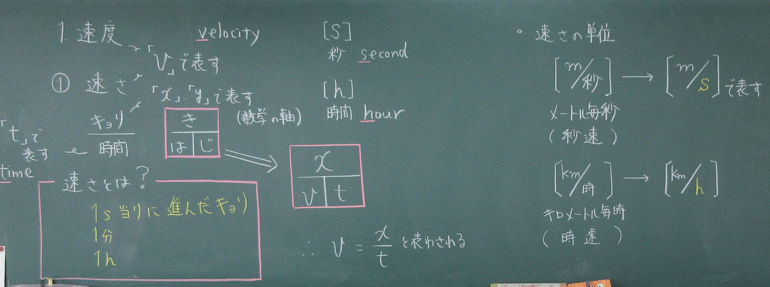 1. 速度 velocity
「v」で表す
① 速さ
「x」「y」で表す
(数学の軸)
キョリ
時間
「t」で
表す
time
き
は じ
x
v t
速さとは?
1s当りに進んだキョリ
1分
1h
∴ v = x/t と表わされる
[s]
秒 second
[h]
時間 hour
。速さの単位
[m/秒] → [m/s] で表す
メートル毎秒
(秒速)
[km/時] → [km/h]
キロメートル毎時
(時速)